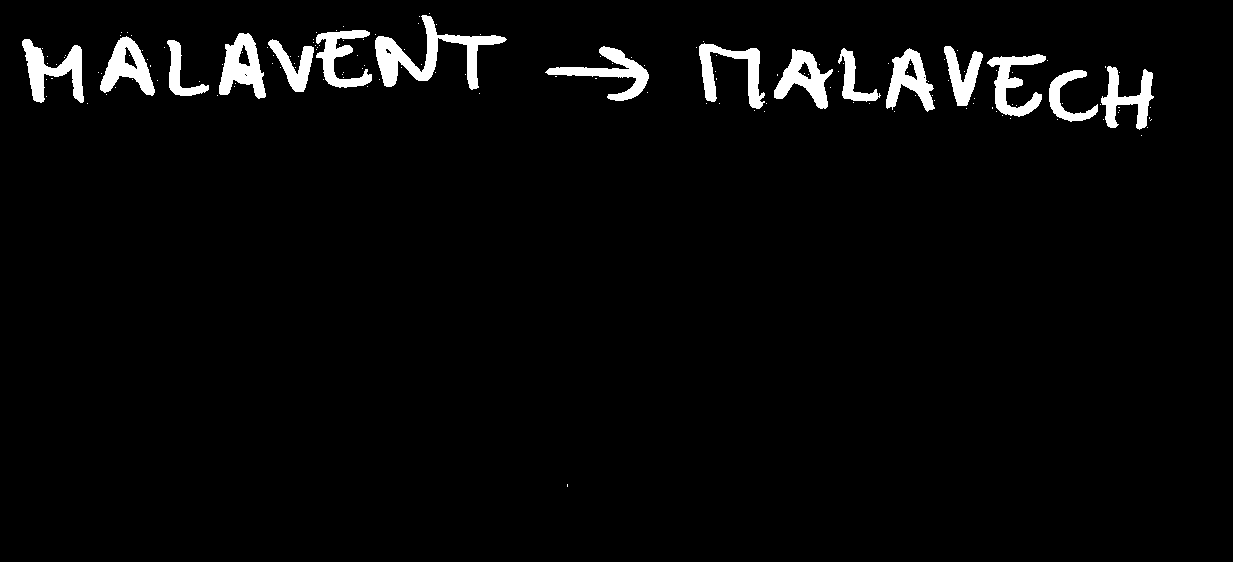 MALAVENT → MALAVECH